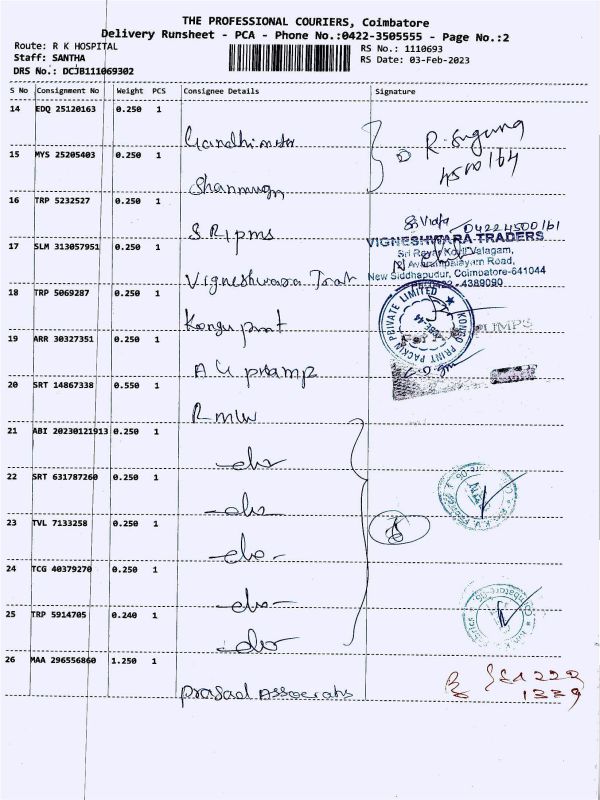 THE PROFESSIONAL COURIERS, Coimbatore
Delivery Runsheet - PCA - Phone No.:0422-3505555 - Page No.:2
Route: R K HOSPITAL
RS No.: 1110693
Staff: SANTHA
RS Date: 03-Feb-2023
DRS No.: DCJB111069302
S No Consignment No Weight PCS Consignee Details Signature
14 EDQ 25120163 0.250 1
Gandhi
15 MYS 25205403 0.250 1
4500164
Shanmugn
16 TRP 5232527 0.250 1
S.R. pms
04224500161
17 SLM 313057951 0.250 1
VIGNESHWARA TRADERS
Avarampalayam Road,
New Siddhapudur, Coimbatore-641044
4389090
Vigneshwara
18 TRP 5069287 0.250 1
KONGO PRINT PACKIN PRIVATE LIMITED
Kongu print
19 ARR 30327351 0.250 1
PUMPS
A G
20 SRT 14867338 0.550 1
R mlw
21 ABI 20230121913 0.250 1
-do-
22 SRT 631787260 0.250 1
-do-
23 TVL 7133258 0.250 1
-do-
24 TCG 40379270 0.250 1
-do-
25 TRP 5914705 0.240 1
-do-
26 MAA 296556860 1.250 1
prasad Assocrats
1339